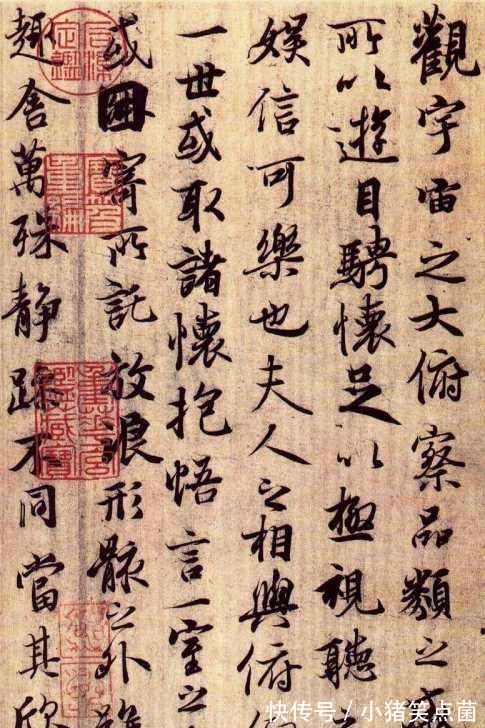 觀宇宙之大俯察品類之
所以遊目騁懷足以極視聽
娛信可樂也夫人之相與俯
一世或取諸懷抱悟言一室之
或因寄所託放浪形骸之外雖
趣舍萬殊静躁不同當其欣
快传号/小猪笑点菌